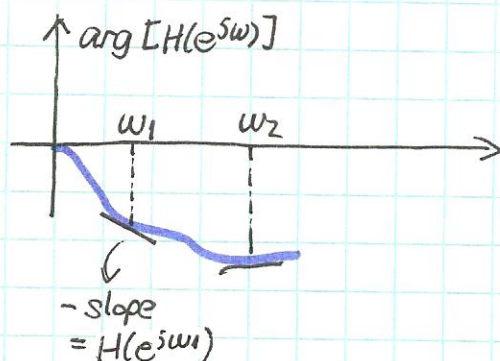 arg [H(e^jω)]
ω1 ω2
- slope
= H(e^jω1)